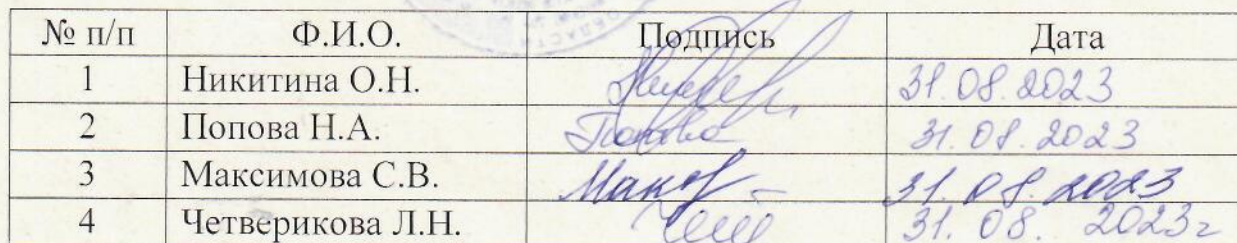 № п/п Ф.И.О. Подпись Дата
1 Никитина О.Н. 31.08.2023
2 Попова Н.А. Попова 31.08.2023
3 Максимова С.В. 31.08.2023
4 Четверикова Л.Н. 31.08.2023г